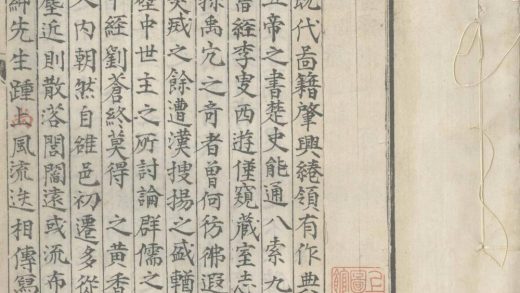 旣代啚籍肇興綣領有作典
帝之書楚史能通八索九
經李叟西遊僅窺藏室
禹穴之奇者曾何彷彿遐
之餘遭漢搜揚之盛輶
中世主之所討論群儒之
經劉蒼終莫得 之黃香
內朝然自雒邑初遷多從
塵近則散落閭閻遠或流布
紳先生踵出風流迭相傳寫